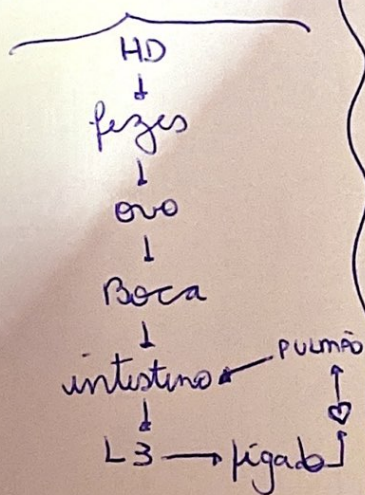 HD
↓
fezes
↓
ovo
↓
Boca
↓
intestino ← PULMÃO
↓ ↑
♡
↑
L3 → fígado